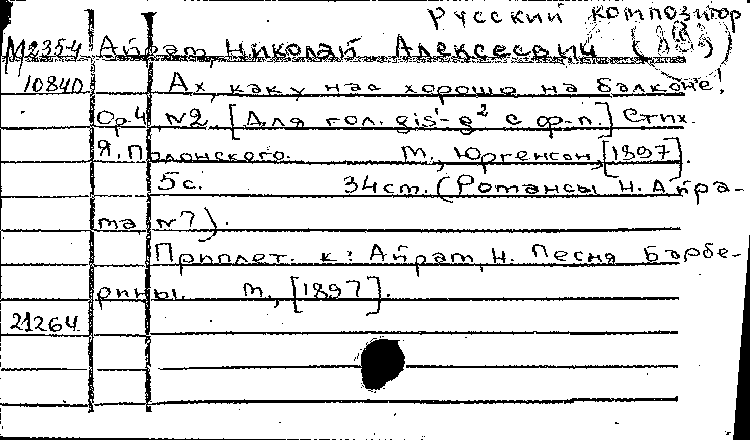 Русский композитор
М235-4 Айрат, Николай Алексеевич
10840 Ах, как у нас хорошо на балконе!
Ор.4, №2. [Для гол. gis-g² с ф-п.] Стих.
Я. Полонского. М., Юргенсон, [1897].
5с. 34см. (Романсы Н. Айра-
та, №7).
Приплет. к: Айрат, Н. Песня Барбе-
рины. М., [1897].
21264